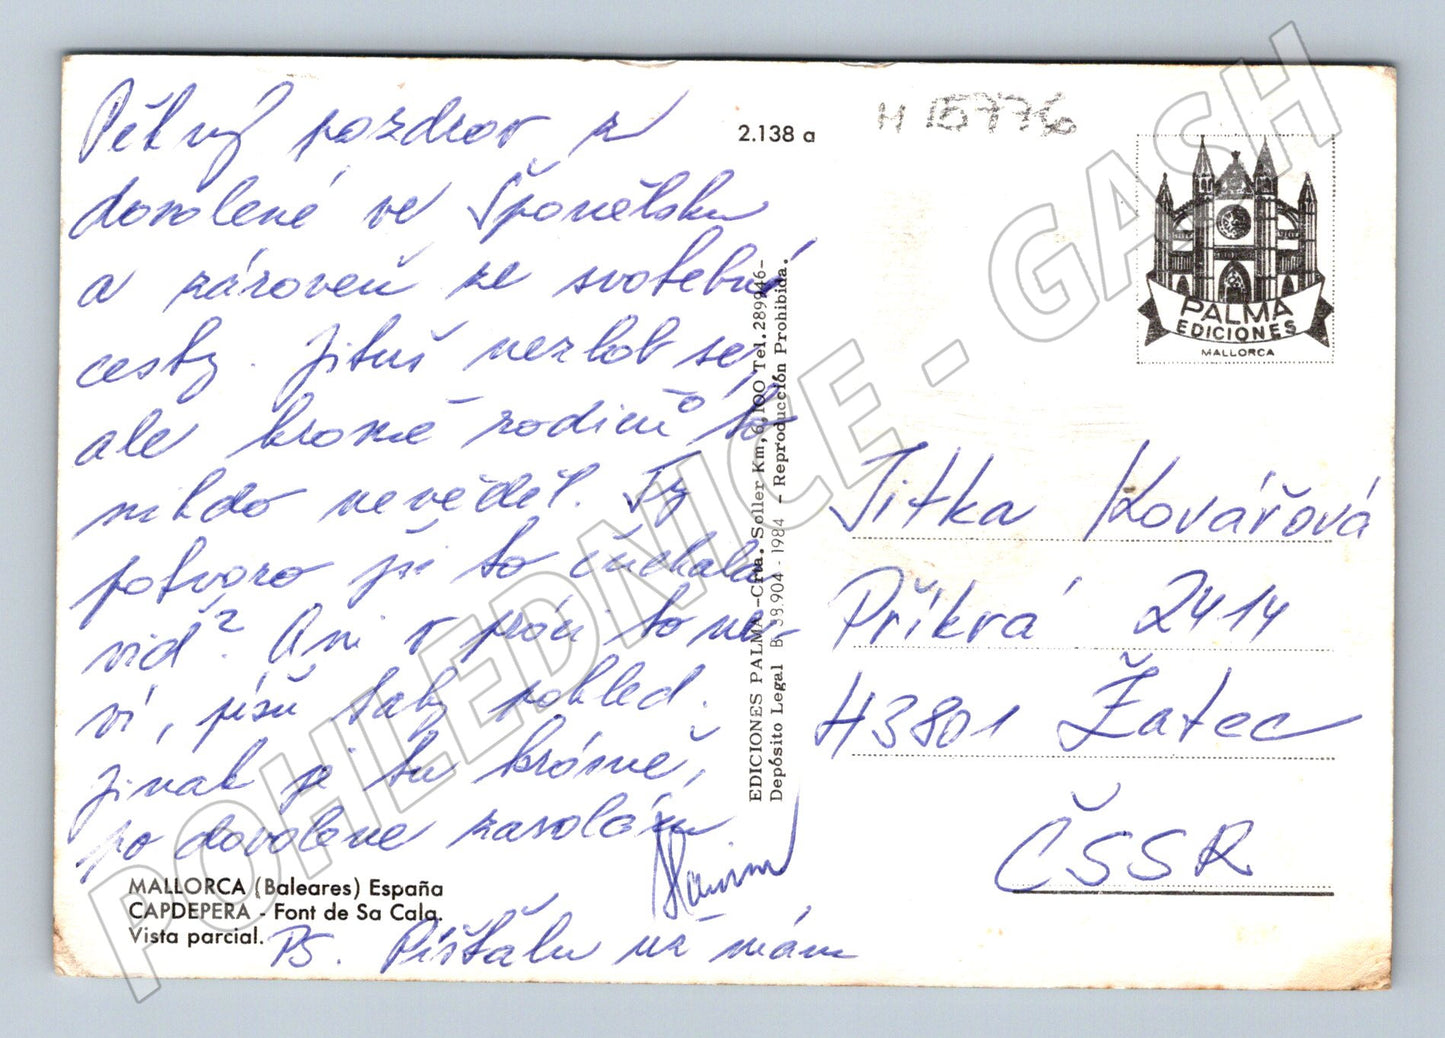 Pěkný pozdrav z
dovolené ve Španělsku
a zároveň ze svatební
cesty. Jituš nezlob se,
ale kromě rodičů to
nikdo nevěděl. Ty
potvoro jsi to čuchala
viď? Ani v práci to ne-
ví, píšu tak pohled.
Jinak je tu krásně,
po dovolené zavolám
PS. Píšťalu už mám
2.138 a
H 15776
PALMA
EDICIONES
MALLORCA
EDICIONES PALMA - Crta. Soller Km, 6,100 Tel. 289946-
Depósito Legal B. 38.904 - 1984 - Reproducción Prohibida.
Jitka Kovářová
Příkrá 2414
43801 Žatec
ČSSR
MALLORCA (Baleares) España
CAPDEPERA - Font de Sa Cala.
Vista parcial.
POHLEDNICE - GASH